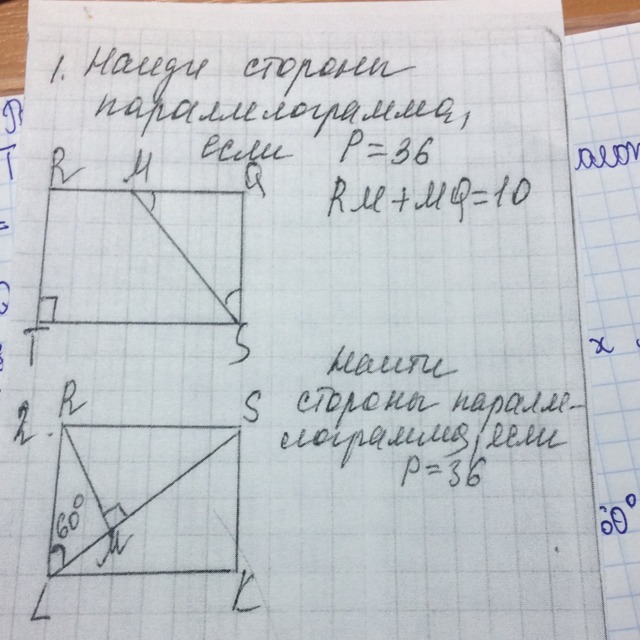 1. Найди стороны
параллелограмма,
если P = 36
R M Q
RM + MQ = 10
T S
2. R S
Найти
стороны паралле-
лограмма, если
P = 36
60°
M
L K